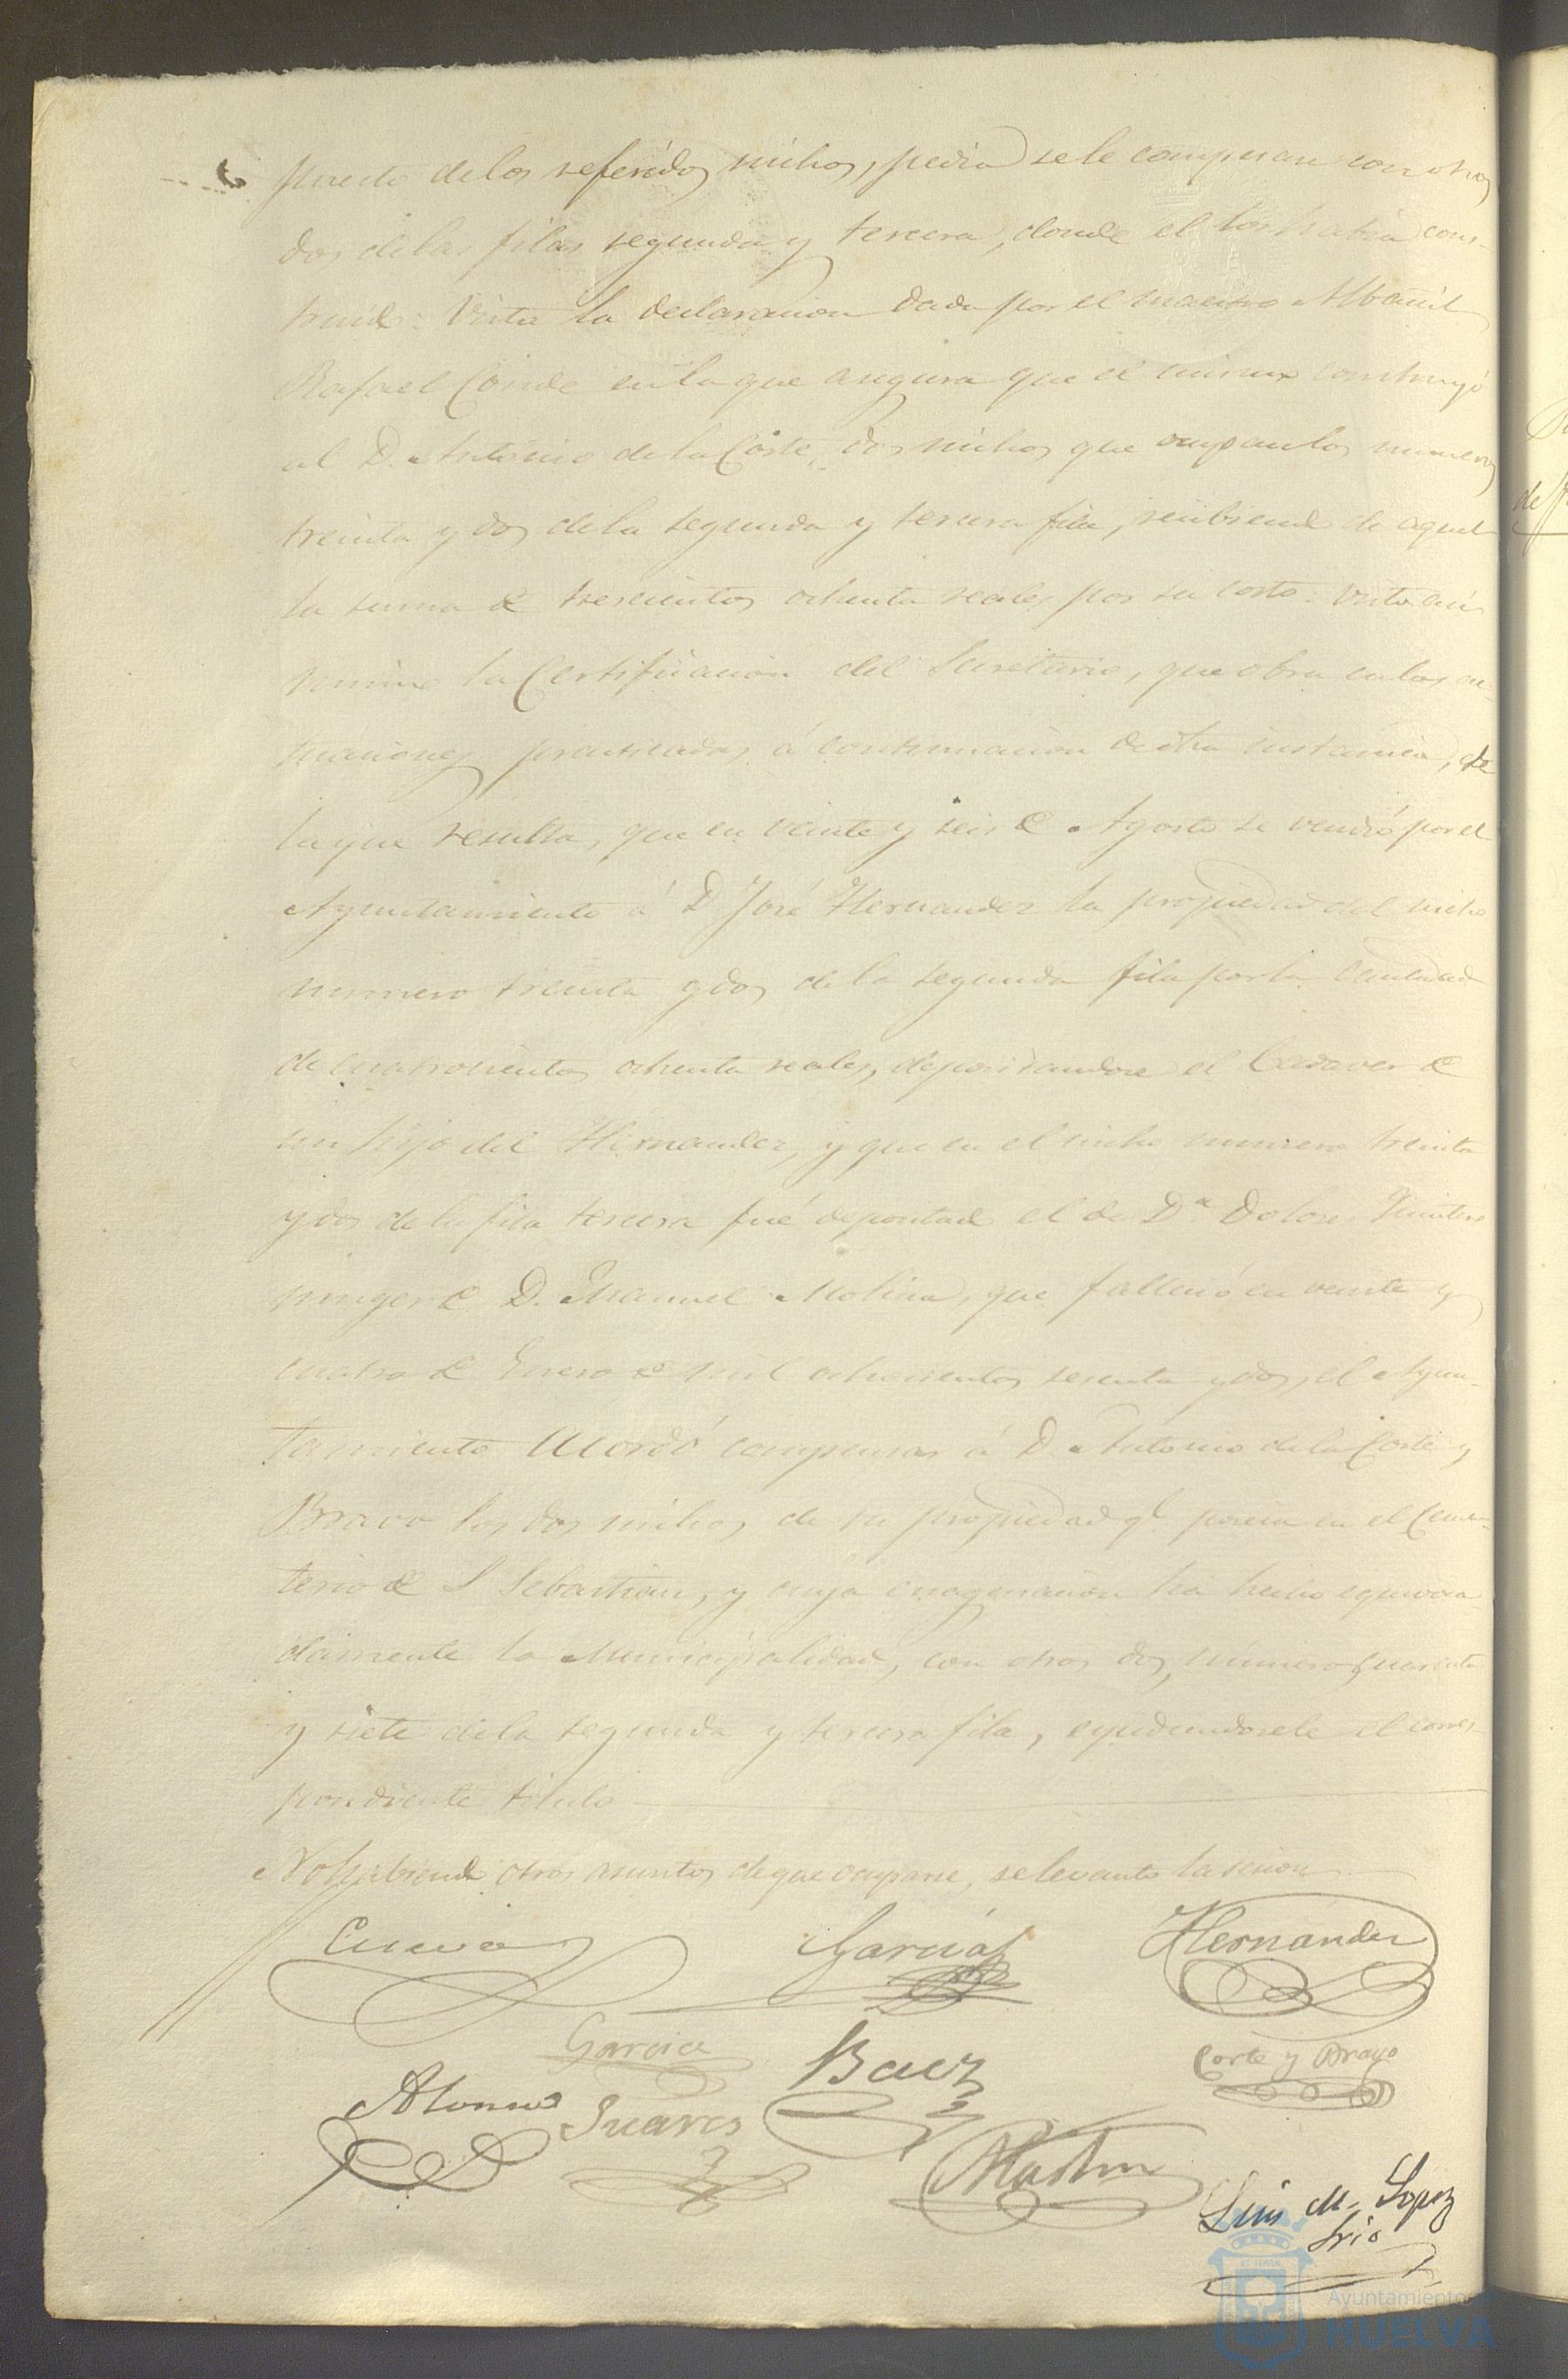 puesto de los referidos nichos, pedia se le compensase con otros
dos de las filas segunda y tercera, donde el los habia cons-
truido: Vista la declaracion dada por el maestro Albañil
Rafael Conde en la que asegura que el mismo construyó
al D. Antonio de la Corte, dos nichos que ocupan los numeros
treinta y dos de la segunda y tercera fila, recibiendo de aquel
la suma de trescientos ochenta reales por su costo: Vista así
mismo la Certificacion del Secretario, que obra en las ac-
tuaciones practicadas á continuacion de dha instancia, de
la que resulta, que en veinte y seis de Agosto se vendió por el
Ayuntamiento á D. José Hernandez la propiedad del nicho
numero treinta y dos de la segunda fila por la cantidad
de cuatrocientos ochenta reales, depositandose el Cadaver de
un hijo del Hernandez, y que en el nicho numero treinta
y dos de la fila tercera fué depositado el de Dª Dolores Quintero
muger de D. Manuel Molina, que falleció en veinte y
cuatro de Enero de mil ochocientos sesenta y dos, el Ayun-
tamiento Acordó compensar á D. Antonio de la Corte y
Bravo los dos nichos de su propiedad q.e poseia en el Cemen-
terio de S Sebastian, y cuya enagenacion ha hecho equivoca-
damente la Municipalidad, con otros dos, número cuarenta
y siete de la segunda y tercera fila, espidiendosele el corres-
pondiente titulo
No habiendo otros asuntos de que ocuparse, se levanto la sesion
Cueva García Hernández
García Baez Corte y Bravo
Alonso Suares
Martin
Luis M. Lopez
Srio
Ayuntamiento
HUELVA